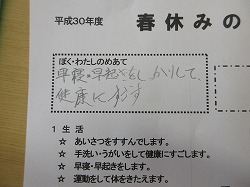 平成30年度
春休みの
ぼく・わたしのめあて
早寝・早起きをしっかりして、
健康にすごす
1 生活
☆ あいさつをすすんでします。
☆ 手洗い・うがいをして健康にすごします。
☆ 早寝・早起きをします。
☆ 運動をして体をきたえます。